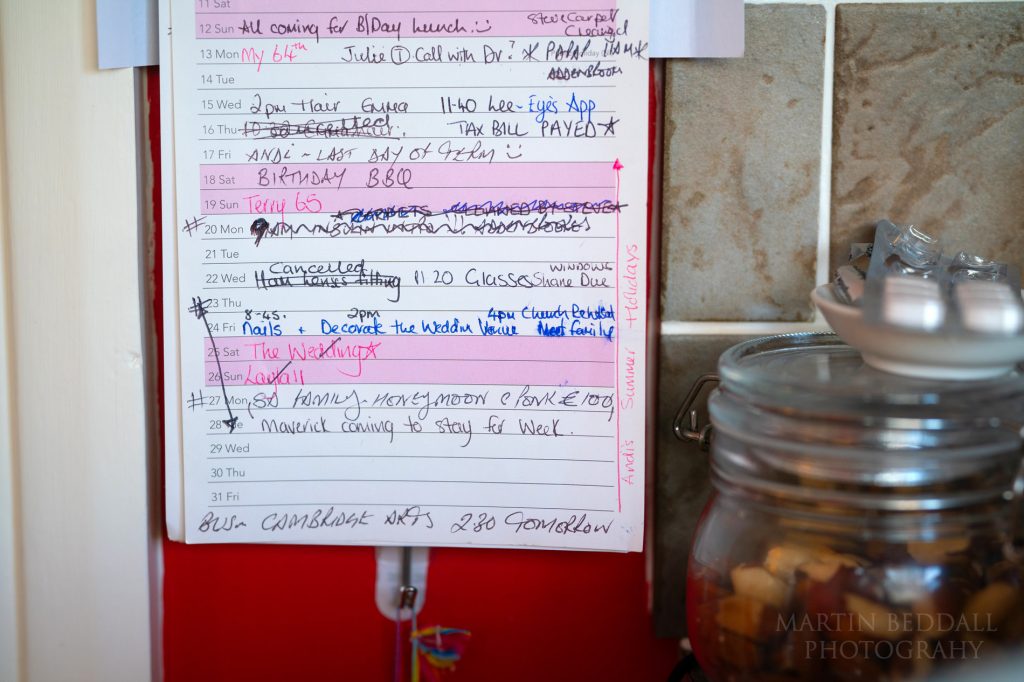 11 Sat
12 Sun All coming for B/Day Lunch :) Steve Carpet
Cleaned
13 Mon My 64th Julie T Call with Dr? * PAPA 11AM *
14 Tue
15 Wed 2pm Hair Emma 11-40 Lee - Eyes App
16 Thu TAX BILL PAYED ☆
17 Fri ANDI - LAST DAY OF TERM :)
18 Sat BIRTHDAY BBQ
19 Sun Terry 65 CARPETS CLEANED BY STEVE
# 20 Mon ADDENBROOKES
21 Tue
Cancelled WINDOWS
22 Wed 11 20 Glasses Shane Due
# 23 Thu
8-45. 2pm 4pm Church
24 Fri Nails + Decorate the Weddin Venue Meet family
25 Sat The Wedding ☆
26 Sun
# 27 Mon FAMILY - HONEYMOON £100
28 Tue Maverick coming to stay for Week.
29 Wed
30 Thu
31 Fri
BUS - CAMBRIDGE ARTS 2 30 TOMORROW
Andis Summer Holidays
MARTIN BEDDALL
PHOTOGRAHY